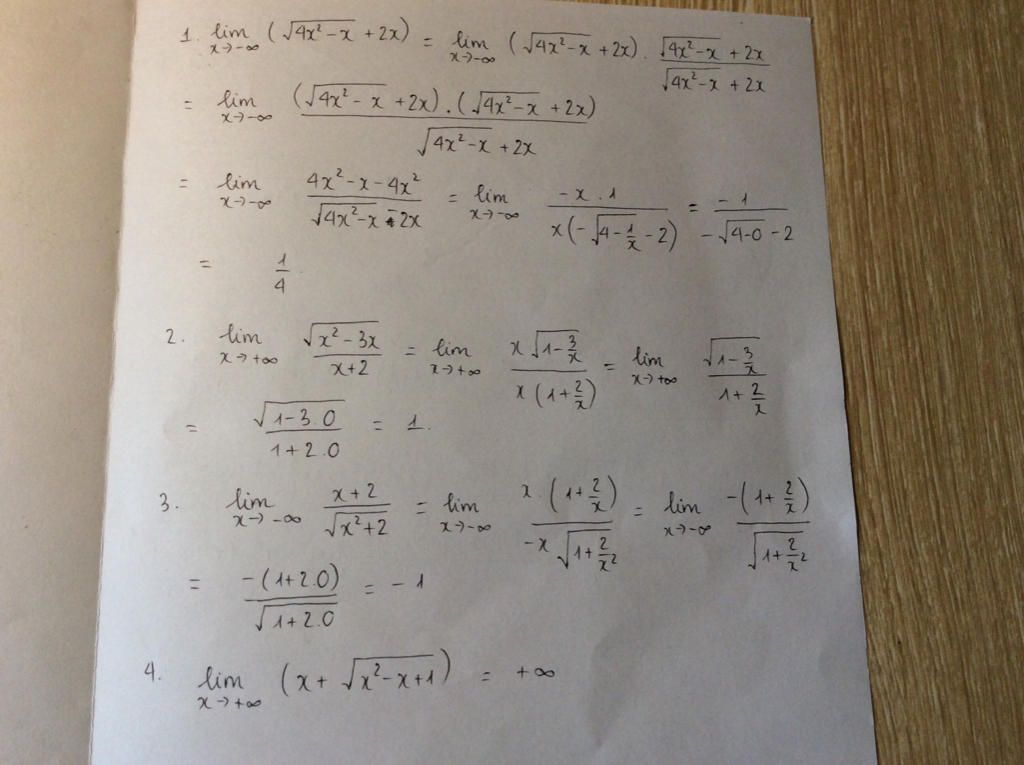 1. lim x→-∞ (√(4x²-x) + 2x) = lim x→-∞ (√(4x²-x) + 2x) . (√(4x²-x) + 2x)/(√(4x²-x) + 2x)
= lim x→-∞ ((√(4x²-x) + 2x) . (√(4x²-x) + 2x))/(√(4x²-x) + 2x)
= lim x→-∞ (4x²-x-4x²)/(√(4x²-x) - 2x) = lim x→-∞ (-x . 1)/(x(-√(4-1/x) - 2)) = (-1)/(-√(4-0) - 2)
= 1/4
2. lim x→+∞ √(x²-3x)/(x+2) = lim x→+∞ (x√(1-3/x))/(x(1+2/x)) = lim x→+∞ √(1-3/x)/(1+2/x)
= √(1-3.0)/(1+2.0) = 1.
3. lim x→-∞ (x+2)/√(x²+2) = lim x→-∞ (x.(1+2/x))/(-x√(1+2/x²)) = lim x→-∞ (-(1+2/x))/√(1+2/x²)
= (-(1+2.0))/√(1+2.0) = -1
4. lim x→+∞ (x+√(x²-x+1)) = +∞